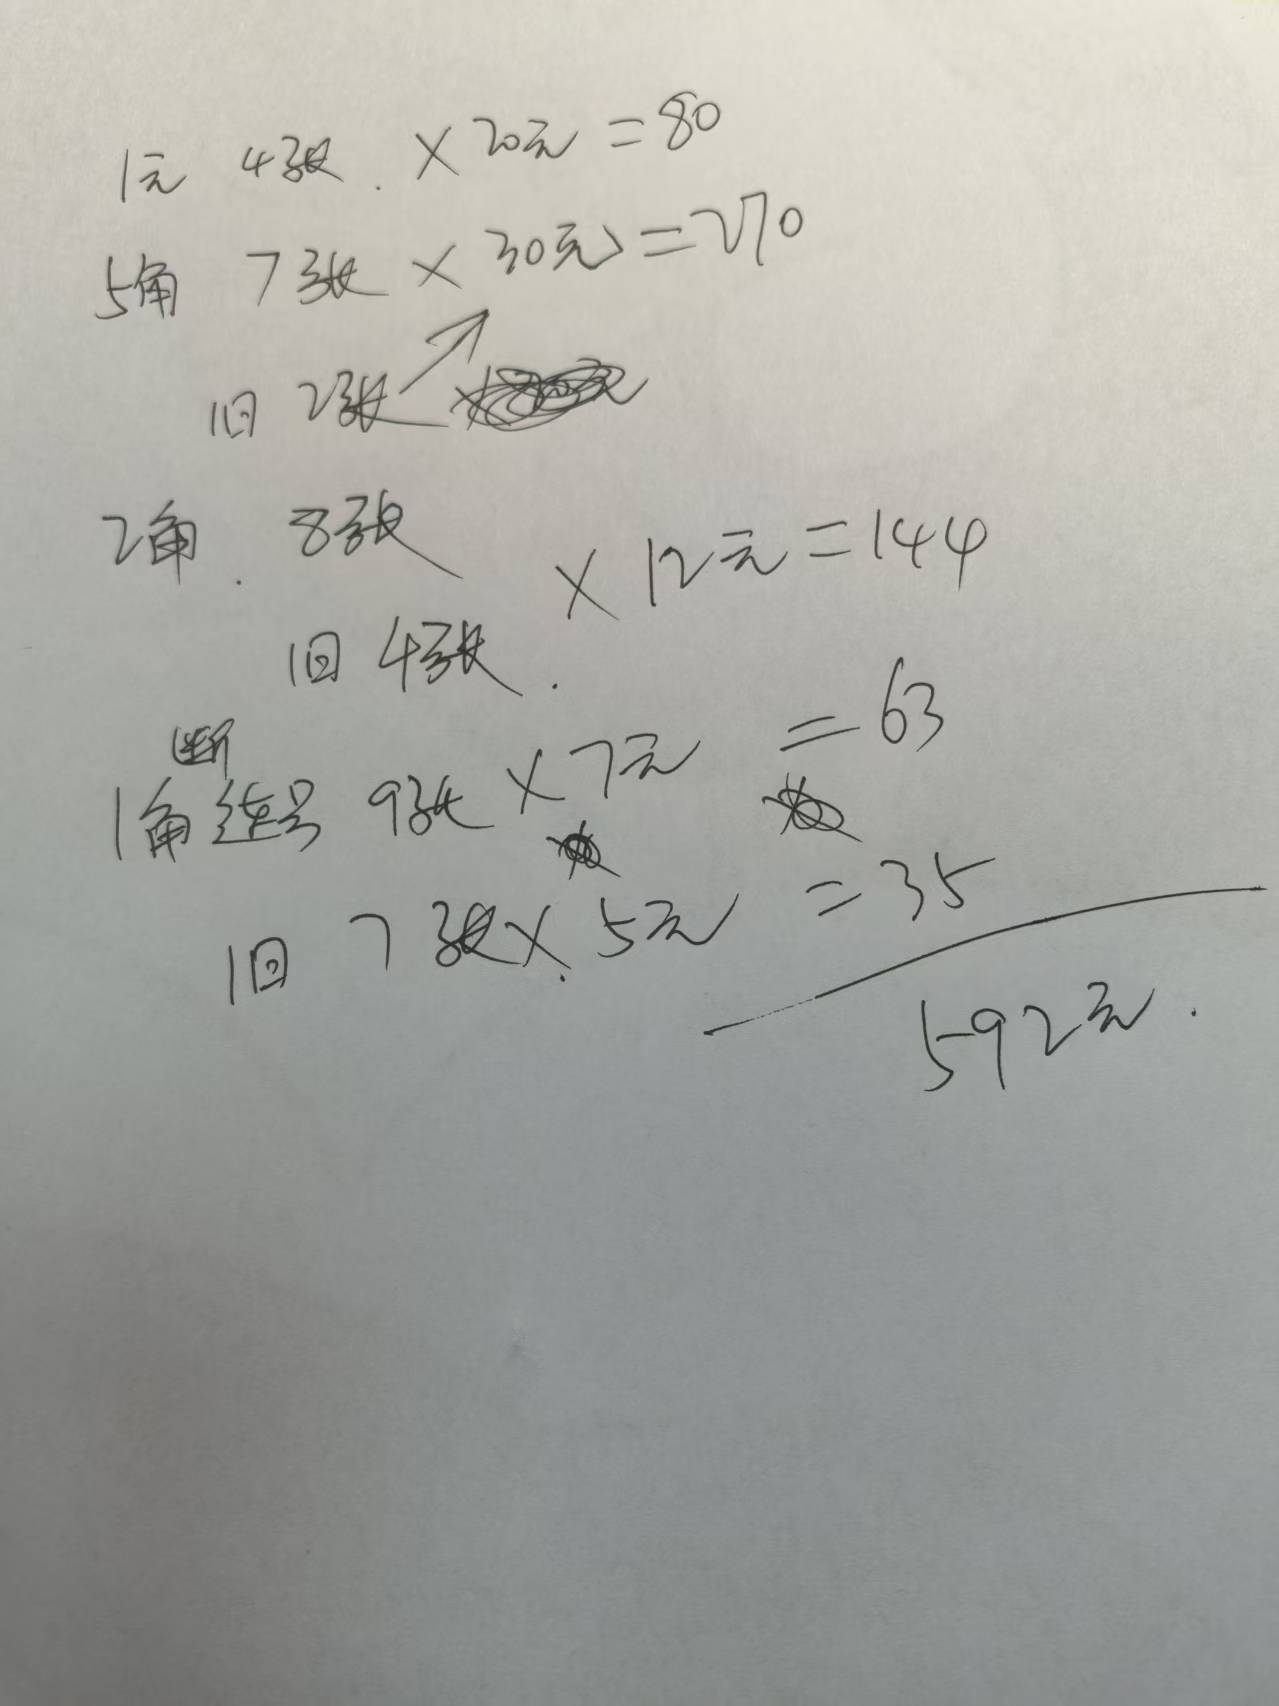 1元 4张. ×20元=80
5角 7张 ×30元=270
旧 2张
2角. 8张
×12元=144
旧 4张.
断
1角连号 9张×7元 =63
旧 7张×5元 =35
592元.